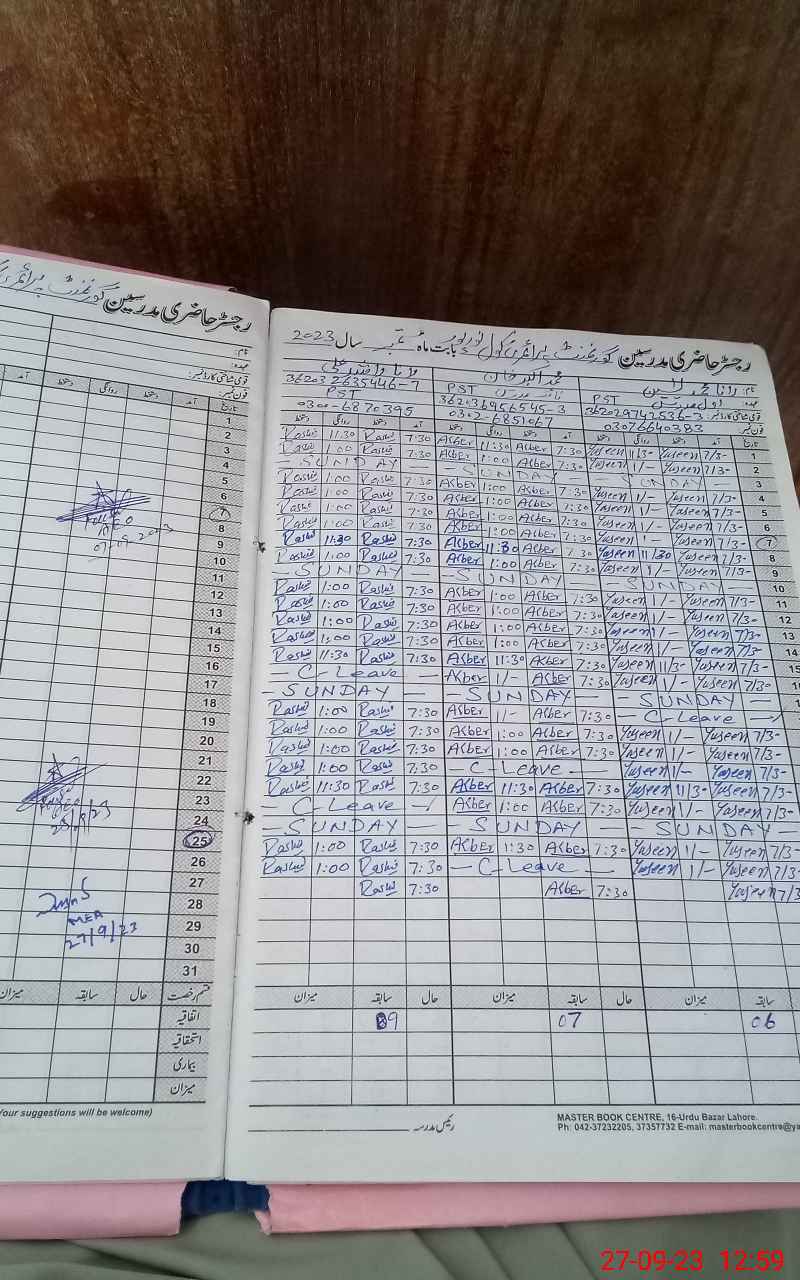 رجسٹر حاضری مدرسین گورنمنٹ پرائمری
نام:
عہدہ:
قومی شناختی کارڈ نمبر:
فون نمبر:
تاریخ آمد دستخط روانگی دستخط آمد
1
2
3
4
5
6
7
8
9
10
11
12
13
14
15
16
17
18
19
20
21
22
23
24
25
26
27
28
29
30
31
AEO
07-09-2023
MEA
27/9/23
قسم رخصت حال سابقہ میزان
اتفاقیہ
استحقاقیہ
بیماری
میزان
Your suggestions will be welcome)
رجسٹر حاضری مدرسین گورنمنٹ پرائمری سکول نورپور بابت ماہ ستمبر سال 2023
نام: رانا محمد یٰسین محمد اکبر خان
عہدہ: اول مدرس PST PST PST
قومی شناختی کارڈ نمبر: 362029742536-3 362036956545-3 36203 2635446-7
فون نمبر: 03076640383 0302-6851067 0300-6870395
تاریخ آمد دستخط روانگی دستخط آمد دستخط روانگی دستخط آمد دستخط روانگی دستخط
Rashid 11:30 Rashid 7:30 Akber 11:30 Akber 7:30 Yaseen 11/3- Yaseen 7/3- 1
Rashid 1:00 Rashid 7:30 Akber 1:00 Akber 7:30 Yaseen 1/- Yaseen 7/3- 2
— SUNDAY — — SUNDAY — — SUNDAY — 3
Rashid 1:00 Rashid 7:30 Akber 1:00 Akber 7:30 Yaseen 1/- Yaseen 7/3- 4
Rashid 1:00 Rashid 7:30 Akber 1:00 Akber 7:30 Yaseen 1/- Yaseen 7/3- 5
Rashid 1:00 Rashid 7:30 Akber 1:00 Akber 7:30 Yaseen 1/- Yaseen 7/3- 6
Rashid 1:00 Rashid 7:30 Akber 1:00 Akber 7:30 Yaseen 1- Yaseen 7/3- 7
Rashid 11:30 Rashid 7:30 Akber 11:30 Akber 7:30 Yaseen 11/30 Yaseen 7/3- 8
Rashid 1:00 Rashid 7:30 Akber 1:00 Akber 7:30 Yaseen 1/- Yaseen 7/3- 9
— SUNDAY — — SUNDAY — — SUNDAY — 10
Rashid 1:00 Rashid 7:30 Akber 1:00 Akber 7:30 Yaseen 1/- Yaseen 7/3- 11
Rashid 1:00 Rashid 7:30 Akber 1:00 Akber 7:30 Yaseen 1/- Yaseen 7/3- 12
Rashid 1:00 Rashid 7:30 Akber 1:00 Akber 7:30 Yaseen 1/- Yaseen 7/3- 13
Rashid 1:00 Rashid 7:30 Akber 1:00 Akber 7:30 Yaseen 1/- Yaseen 7/3- 14
Rashid 11:30 Rashid 7:30 Akber 11:30 Akber 7:30 Yaseen 11/3- Yaseen 7/3- 15
— C-Leave — Akber 1/- Akber 7:30 Yaseen 1/- Yaseen 7/30 16
— SUNDAY — — SUNDAY — — SUNDAY —
Rashid 1:00 Rashid 7:30 Akber 1/- Akber 7:30 — C-Leave —
Rashid 1:00 Rashid 7:30 Akber 1:00 Akber 7:30 Yaseen 1/- Yaseen 7/3-
Rashid 1:00 Rashid 7:30 Akber 1:00 Akber 7:30 Yaseen 1/- Yaseen 7/3-
Rashid 1:00 Rashid 7:30 — C-Leave — Yaseen 1/- Yaseen 7/3-
Rashid 11:30 Rashid 7:30 Akber 11:30 Akber 7:30 Yaseen 11/3- Yaseen 7/3-
— C-Leave — Akber 1:00 Akber 7:30 Yaseen 1/- Yaseen 7/3-
— SUNDAY — — SUNDAY — — SUNDAY
Rashid 1:00 Rashid 7:30 Akber 1:30 Akber 7:30 Yaseen 1/- Yaseen 7/3-
Rashid 1:00 Rashid 7:30 — C-Leave — Yaseen 1/- Yaseen 7/3-
Rashid 7:30 Akber 7:30 Yaseen 7/3
سابقہ میزان حال سابقہ میزان حال سابقہ میزان
06 07 09
رئیس مدرسہ
MASTER BOOK CENTRE, 16-Urdu Bazar Lahore.
Ph: 042-37232205, 37357732 E-mail: masterbookcentre@ya
27-09-23 12:59